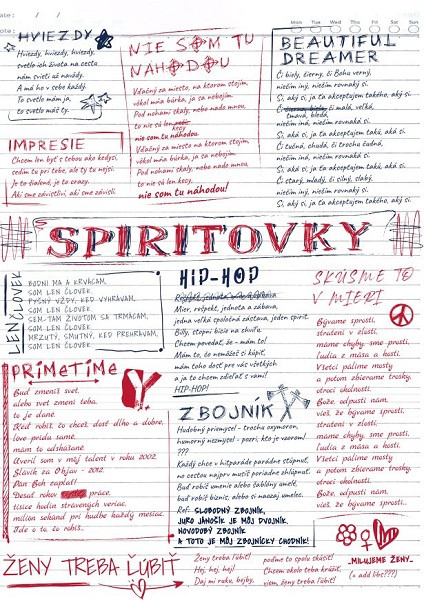 Date: / /
Note:
Mon Tue Wed Thu Fri Sat Sun
HVIEZDY
Hviezdy, hviezdy, hviezdy,
svetlo ich života na cestu
nám svieti až navždy.
A má ho v sebe každý.
To svetlo mám ja,
to svetlo máš ty.
NIE SOM TU
NÁHODOU
Vďačný za miesto, na ktorom stojím,
vôkol mňa búrka, ja sa nebojím.
Pod nohami skaly, nebo nado mnou,
to nie sú len
kecy
nie som tu náhodou.
Vďačný za miesto, na ktorom stojím,
vôkol mňa búrka, ja sa nebojím.
Pod nohami skaly, nebo nado mnou,
to nie sú len kecy,
nie som tu náhodou!
BEAUTIFUL
DREAMER
Či biely, čierny, či Bohu verný,
nečím iný, nečím rovnaký si.
Si, aký si, ja ťa akceptujem takého, aký si.
Či malá, veľká,
tmavá, bledá,
nečím iná, nečím rovnaká si.
Si, aká si, ja ťa akceptujem takú, aká si.
Či tučná, chudá, či trochu čudná,
nečím iná, nečím rovnaká si.
Si, aká si, ja ťa akceptujem takú, aká si.
Či starý, mladý, či silný, slabý,
nečím iný, nečím rovnaký si.
Si, aký si, ja ťa akceptujem takého, aký si.
IMPRESIE
Chcem len byť s tebou ako kedysi,
sedím tu pri tebe, ale ty tu nejsi.
Je to šialené, je to crazy.
Ak sme závistliví, ak sme závislí.
SPIRITOVKY
LEN ČLOVEK
BODNI MA A KRVÁCAM,
SOM LEN ČLOVEK.
PYŠNÝ VŽDY, KEĎ VYHRÁVAM,
SOM LEN ČLOVEK.
SEM-TAM ŽIVOTOM SA TRMÁCAM,
SOM LEN ČLOVEK.
MRZUTÝ, SMUTNÝ, KEĎ PREHRÁVAM,
SOM LEN ČLOVEK.
HIP-HOP
Rešpekt, jednota a zábava
Mier, rešpekt, jednota a zábava,
jedna veľká spoločná zástava, jeden spirit.
Billy, stopni bicie na chvíľu.
Chcem povedať, čo - mám to!
Mám to, čo nemôžeš si kúpiť,
mám toho dosť pre vás všetkých
a ja to chcem zdieľať s vami!
HIP-HOP!
SKÚSME TO
V MIERI
Bývame sprostí,
stratení v zlosti,
máme chyby, sme prostí,
ľudia z mäsa a kostí.
Všetci pálime mosty
a potom zbierame trosky,
otrocí okolností.
Bože, odpusti nám,
vieš, že bývame sprostí,
stratení v zlosti,
máme chyby, sme prostí,
ľudia z mäsa a kostí.
Všetci pálime mosty
a potom zbierame trosky,
otrocí okolností.
Bože, odpusti nám,
vieš, že bývame sprostí...
PRÍMETÍME
Buď zmeníš svet,
alebo svet zmení teba,
to je dané.
Keď robíš, čo chceš, dosť dlho a dobre,
love prídu samé,
mám to odskúšané.
Otvoril som v môj talent v roku 2002.
Slávik za Objav - 2012.
Pán Boh zaplať!
Desať rokov práce,
tisíce hodín strávených veriac,
milión sekúnd pri hudbe každý mesiac.
Ide o to, čo robíš...
ZBOJNÍK
Hudobný priemysel - trochu oxymoron,
humorný nezmysel - pozri, kto je vzorom!
???
Každý chce v hitparáde parádne stúpnuť,
na cestou najprv musíš poriadne zhlúpnuť.
Buď robíš umenie alebo šablóny umelé,
buď robíš biznis, alebo si naozaj umelec.
Ref: SLOBODNÝ ZBOJNÍK,
JURO JÁNOŠÍK JE MÔJ DVOJNÍK,
NOVODOBÝ ZBOJNÍK
A TOTO JE MÔJ ZBOJNÍCKY CHODNÍK!
ŽENY TREBA ĽÚBIŤ
Ženy treba ľúbiť!
Hej, hej, hej!
Daj mi ruku, bejby,
poďme to spolu skúsiť!
Chcem okolo teba krúžiť,
viem, ženy treba ľúbiť!
-MILUJEME ŽENY-
(+ add libs???)